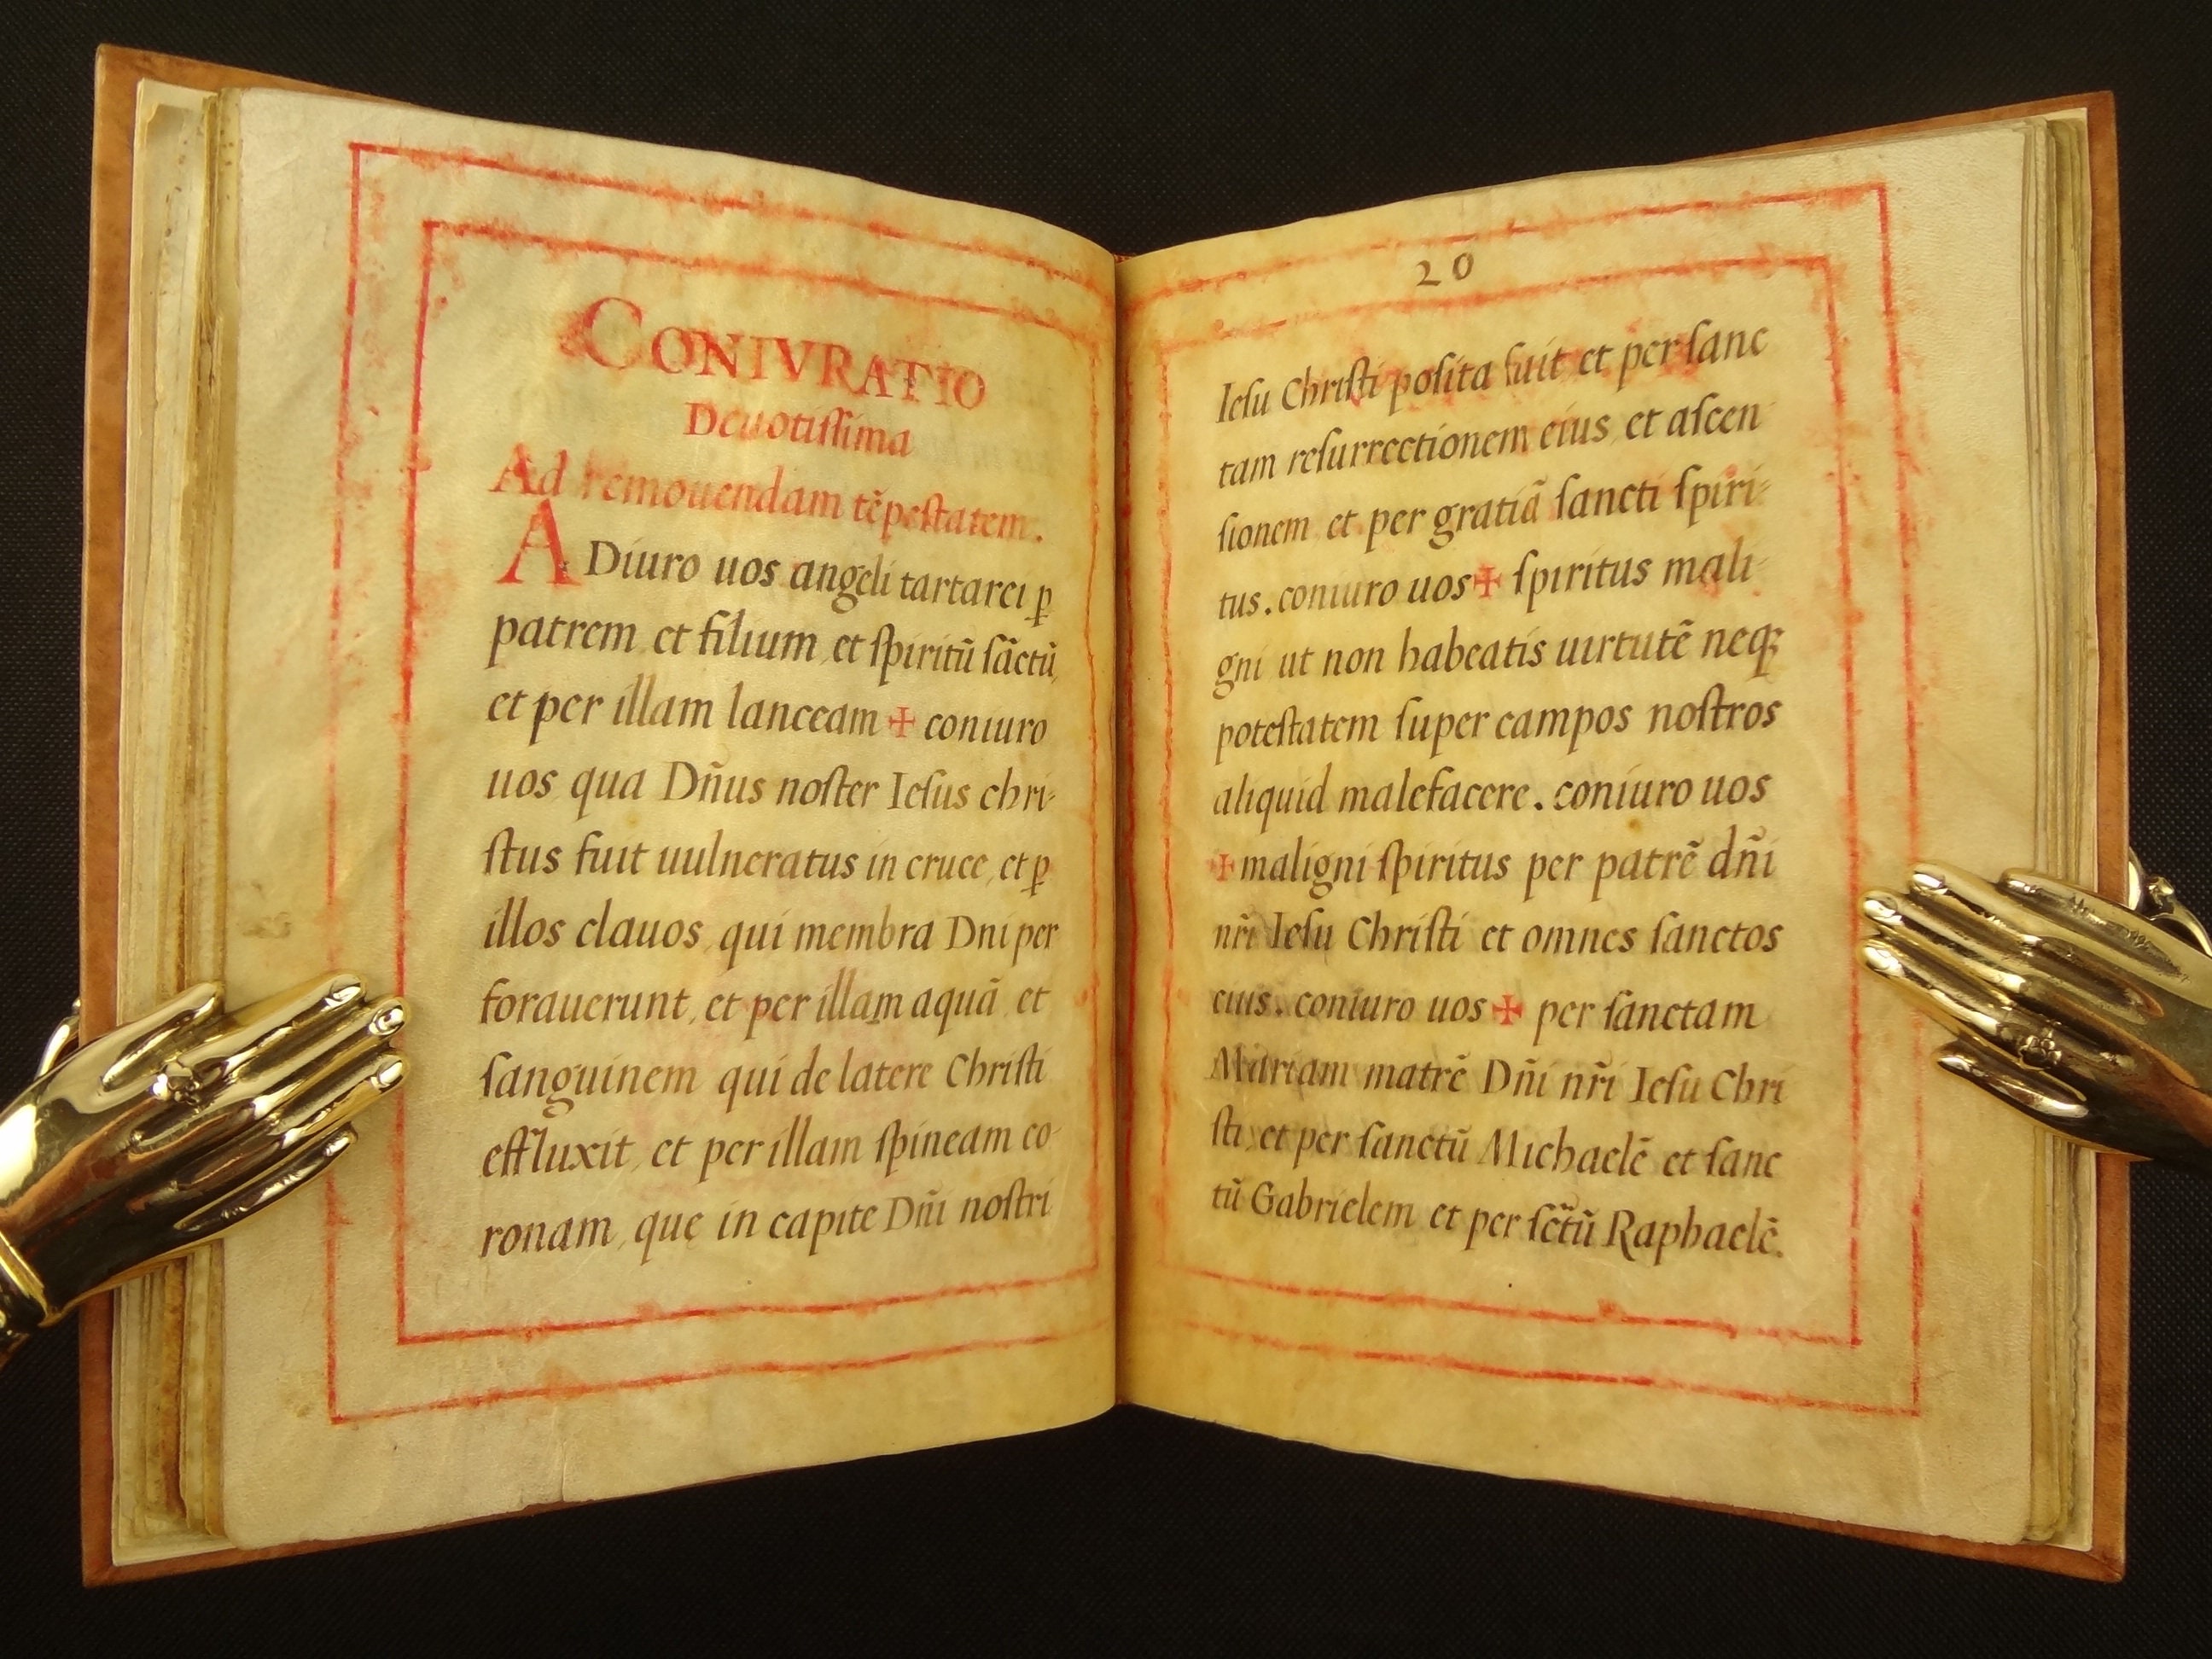 CONIVRATIO
Deuotiſſima
Ad remouendam tēpeſtatem.
ADiuro uos angeli tartarei ꝑ
patrem et filium, et ſpiritū ſāctū,
et per illam lanceam ✠ coniuro
uos qua Dn̄us noſter Ieſus chri-
ſtus fuit uulneratus in cruce, et ꝑ
illos clauos, qui membra Dni per
forauerunt, et per illam aquā et
ſanguinem qui de latere Chriſti
effluxit, et per illam ſpineam co-
ronam, quę in capite Dn̄i noſtri
20
Ieſu Chriſti poſita fuit et per ſanc
tam reſurrectionem eius, et aſcen
ſionem et per gratiā ſancti ſpiri-
tus. coniuro uos ✠ ſpiritus mali-
gni ut non habeatis uirtutē neqꝫ
poteſtatem ſuper campos noſtros
aliquid malefacere. coniuro uos
✠ maligni ſpiritus per patrē dn̄i
nr̄i Ieſu Chriſti et omnes ſanctos
eius. coniuro uos ✠ per ſanctam
Mariam matrē Dn̄i nr̄i Ieſu Chri
ſti, et per ſanctū Michaelē et ſanc
tū Gabrielem et per ſc̄tū Raphaelē.